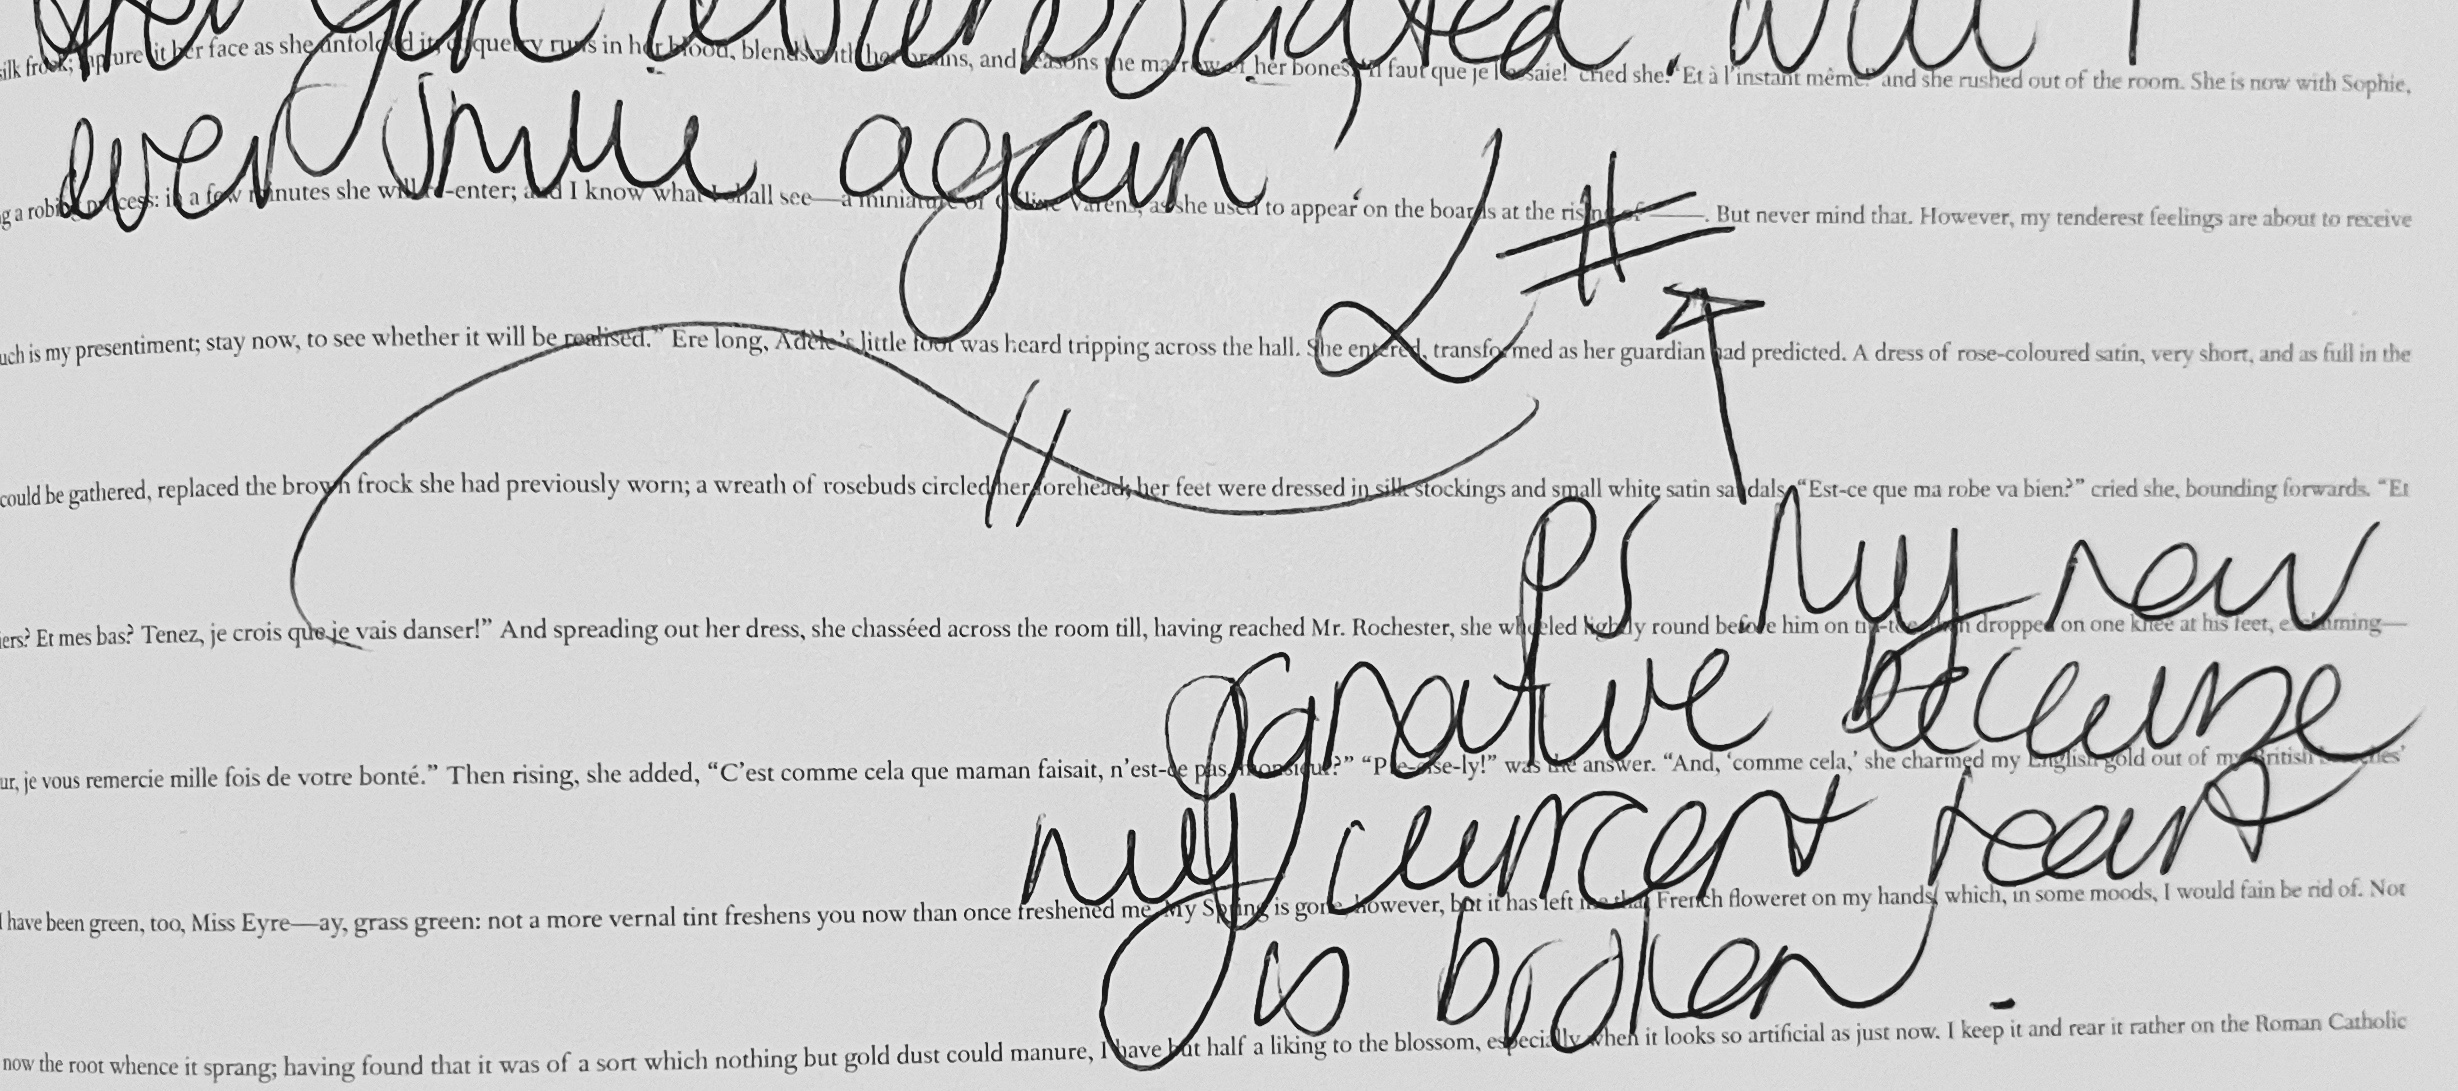 the girl ever boated. Will I
silk frock; rapture lit her face as she unfolded it; coquetry runs in her blood, blends with her brains, and seasons the marrow of her bones. ‘Il faut que je l’essaie!’ cried she. ‘Et à l’instant même!’ and she rushed out of the room. She is now with Sophie,
ever smile again
g a robing process: in a few minutes she will re-enter; and I know what I shall see—a miniature of Céline Varens, as she used to appear on the boards at the rising of ——. But never mind that. However, my tenderest feelings are about to receive
L #
uch is my presentiment; stay now, to see whether it will be realised.” Ere long, Adèle’s little foot was heard tripping across the hall. She entered, transformed as her guardian had predicted. A dress of rose-coloured satin, very short, and as full in the
could be gathered, replaced the brown frock she had previously worn; a wreath of rosebuds circled her forehead; her feet were dressed in silk stockings and small white satin sandals. “Est-ce que ma robe va bien?” cried she, bounding forwards. “Et
PS My new
iers? Et mes bas? Tenez, je crois que je vais danser!” And spreading out her dress, she chasséed across the room till, having reached Mr. Rochester, she wheeled lightly round before him on tip-toe, then dropped on one knee at his feet, exclaiming—
signature because
ur, je vous remercie mille fois de votre bonté.” Then rising, she added, “C’est comme cela que maman faisait, n’est-ce pas, monsieur?” “Pre-cise-ly!” was the answer. “And, ‘comme cela,’ she charmed my English gold out of my British breeches’
my current heart
I have been green, too, Miss Eyre—ay, grass green: not a more vernal tint freshens you now than once freshened me. My Spring is gone, however, but it has left me that French floweret on my hands, which, in some moods, I would fain be rid of. Not
is broken.
now the root whence it sprang; having found that it was of a sort which nothing but gold dust could manure, I have but half a liking to the blossom, especially when it looks so artificial as just now. I keep it and rear it rather on the Roman Catholic